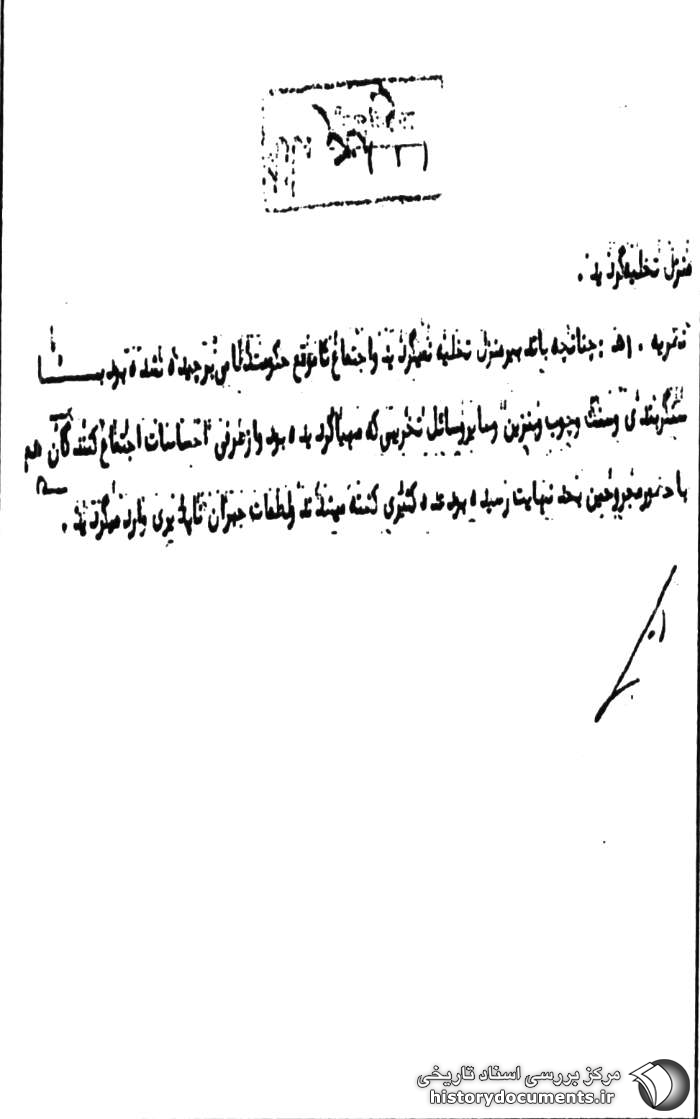 منزل تخلیه گردید .
نظریه . ۱هـ : چنانچه باند بهر منزل تخلیه نمیگردید و اجتماع تا موقع حکومت نظامی برچیده نشده بود بـــا
سنگربندی و سنگ و چوب و بنزین و سایر وسائل تخریبی که مهیا گردیده بود و از طرفی احساسات اجتماع کنندگان هم
با حضور مجروحین بحد نهایت رسیده بود عده کثیری کشته میشدند و لطمات جبران ناپذیری وارد میگردید .
مرکز بررسی اسناد تاریخی
historydocuments.ir